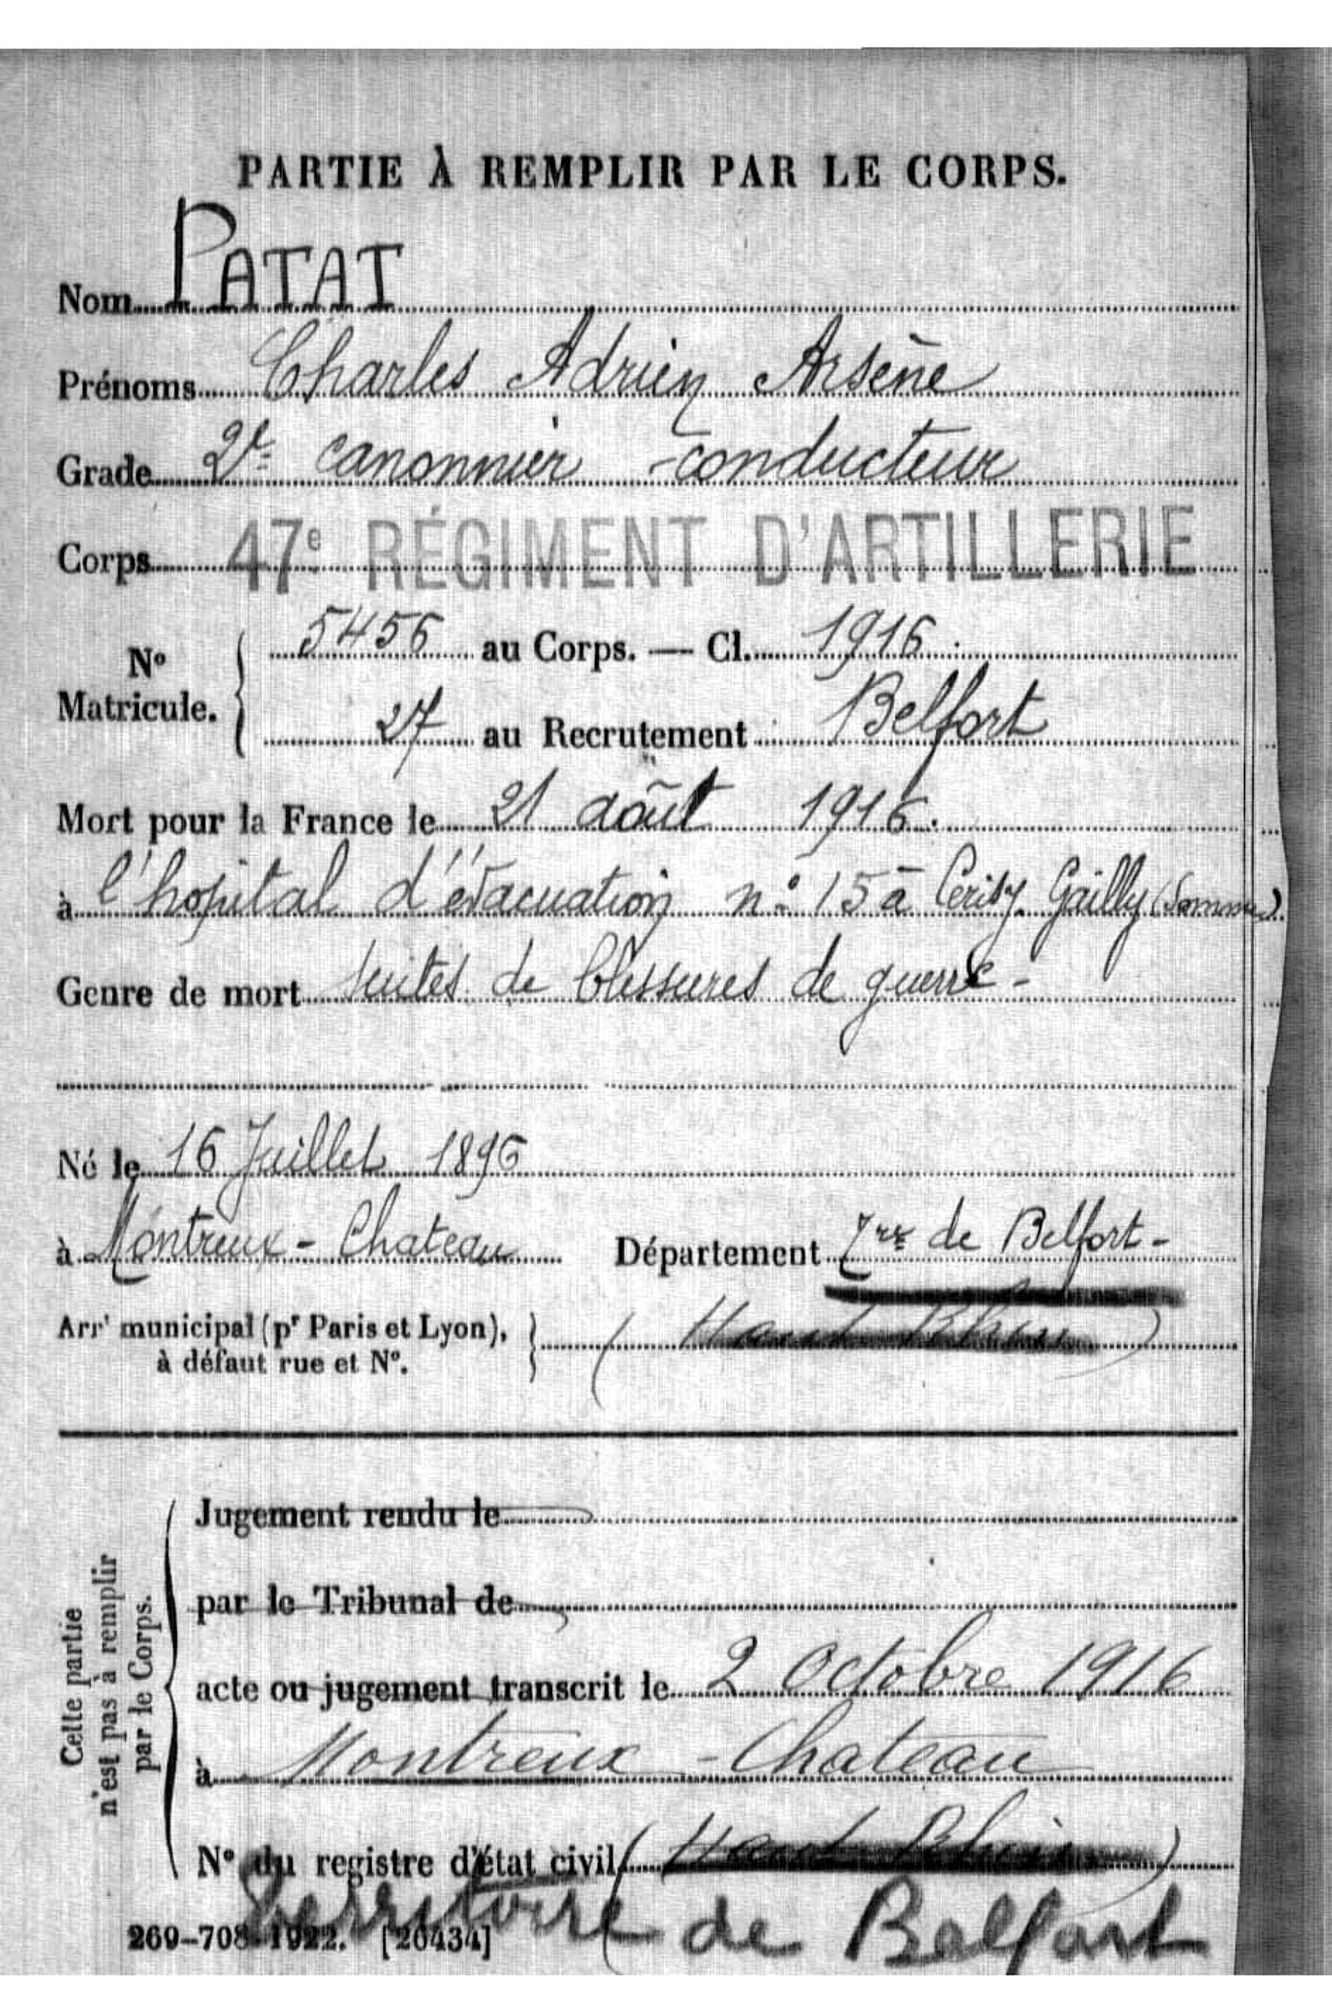 PARTIE À REMPLIR PAR LE CORPS.
Nom PATAT
Prénoms Charles Adrien Arsène
Grade 2e canonnier - conducteur
Corps 47e RÉGIMENT D'ARTILLERIE
No Matricule. { 5456 au Corps. — Cl. 1916.
27 au Recrutement Belfort
Mort pour la France le 21 août 1916.
à l'hôpital d'évacuation n° 15 à Cerisy Gailly (Somme).
Genre de mort suites de blessures de guerre -
Né le 16 Juillet 1896
à Montreux - Chateau Département Tre de Belfort -
Arrt municipal (pr Paris et Lyon), à défaut rue et No. } ( Haut Rhin )
Cette partie n'est pas à remplir par le Corps.
Jugement rendu le
par le Tribunal de
acte ou jugement transcrit le 2 Octobre 1916
à Montreux - Chateau
No du registre d'état civil ( Haut Rhin )
Territoire de Belfort
269-708-1922. [26434]